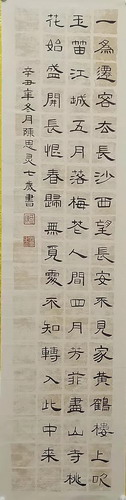 一為遷客去長沙西望長安不見家黃鶴樓上吹
玉笛江城五月落梅花人間四月芳菲盡山寺桃
花始盛開長恨春歸無覓處不知轉入此中来
辛丑年冬月陳思灵七歲書